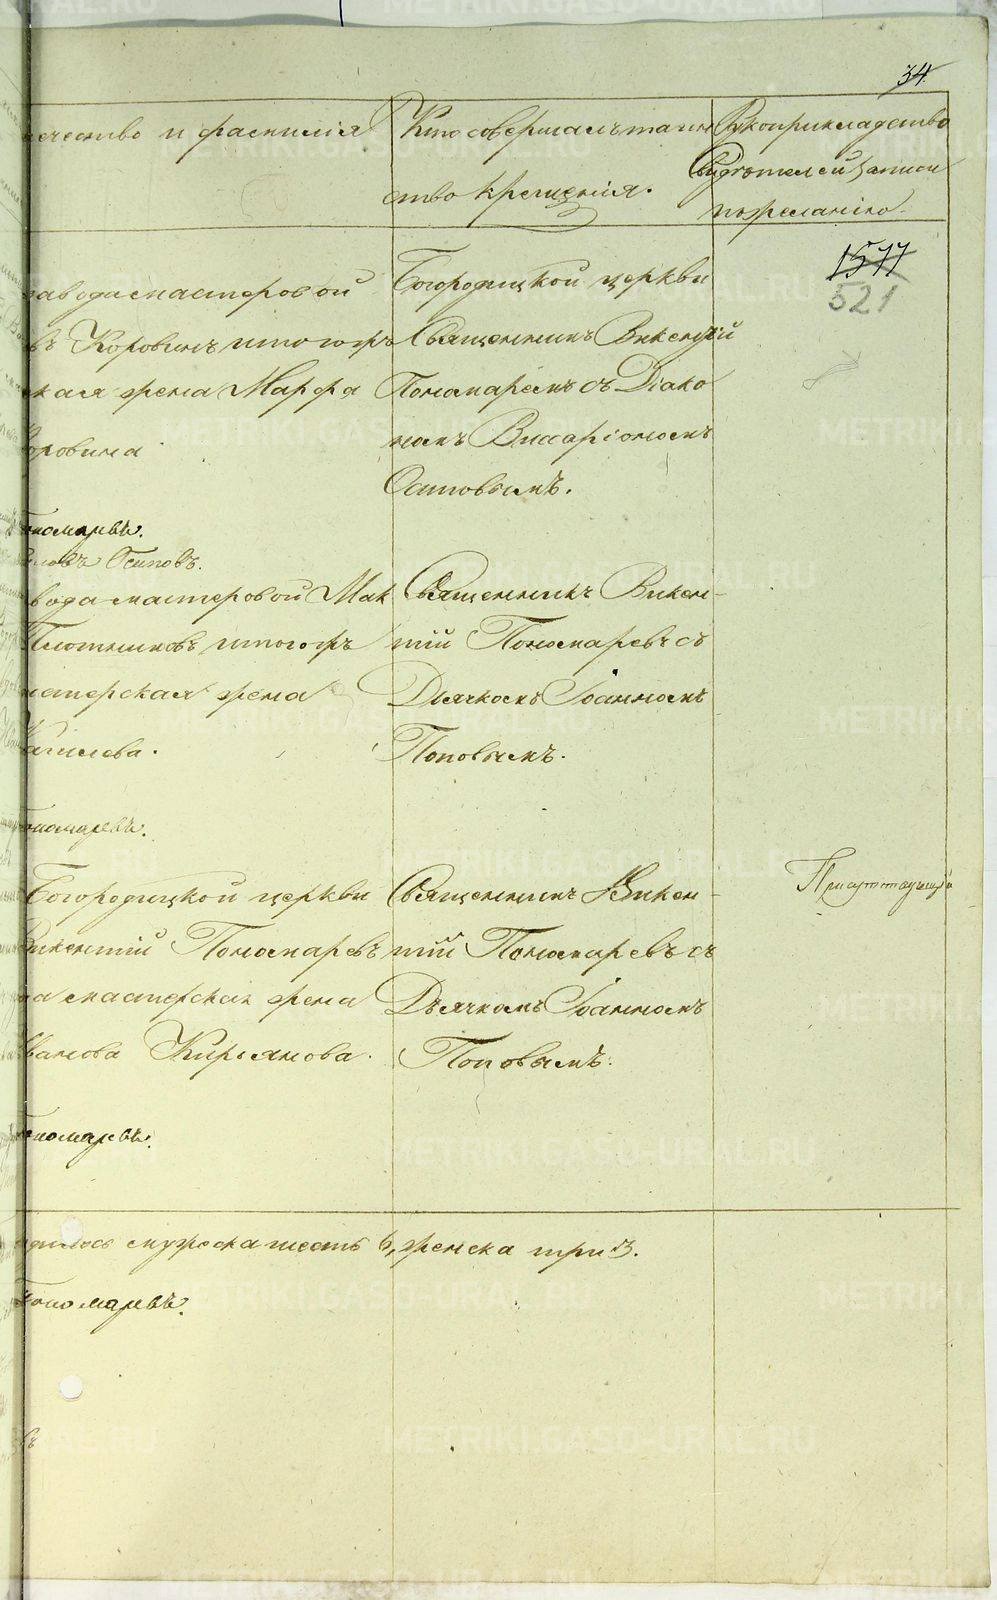 34
ечество и фамилія
Кто совершалъ таин
ство крещенія.
Рукоприкладство
свидѣтелей записи
по желанію.
1577
521
завода мастеровой
въ Коровинъ и того жъ
ская жена Марфа
Коровина
Богородицкой церкви
Священникъ Викентій
Пономаревъ съ Діако
номъ Виссаріономъ
Осиповымъ.
Пономаревъ.
Осиповъ.
вода мастеровой Мак
Плотниковъ и того жъ
мастерская жена
Священникъ Викен-
тій Пономаревъ съ
Дьячкомъ Іоанномъ
Поповымъ.
Пономаревъ.
Богородицкой церкви
Викентій Пономаревъ
на мастерская жена
Иванова Кирьянова.
Священникъ Викен-
тій Пономаревъ съ
Дьячкомъ Іоанномъ
Поповымъ.
Пономаревъ.
мужеска шесть 6, женска три 3.
Пономаревъ.
METRIKI.GASO-URAL.RU